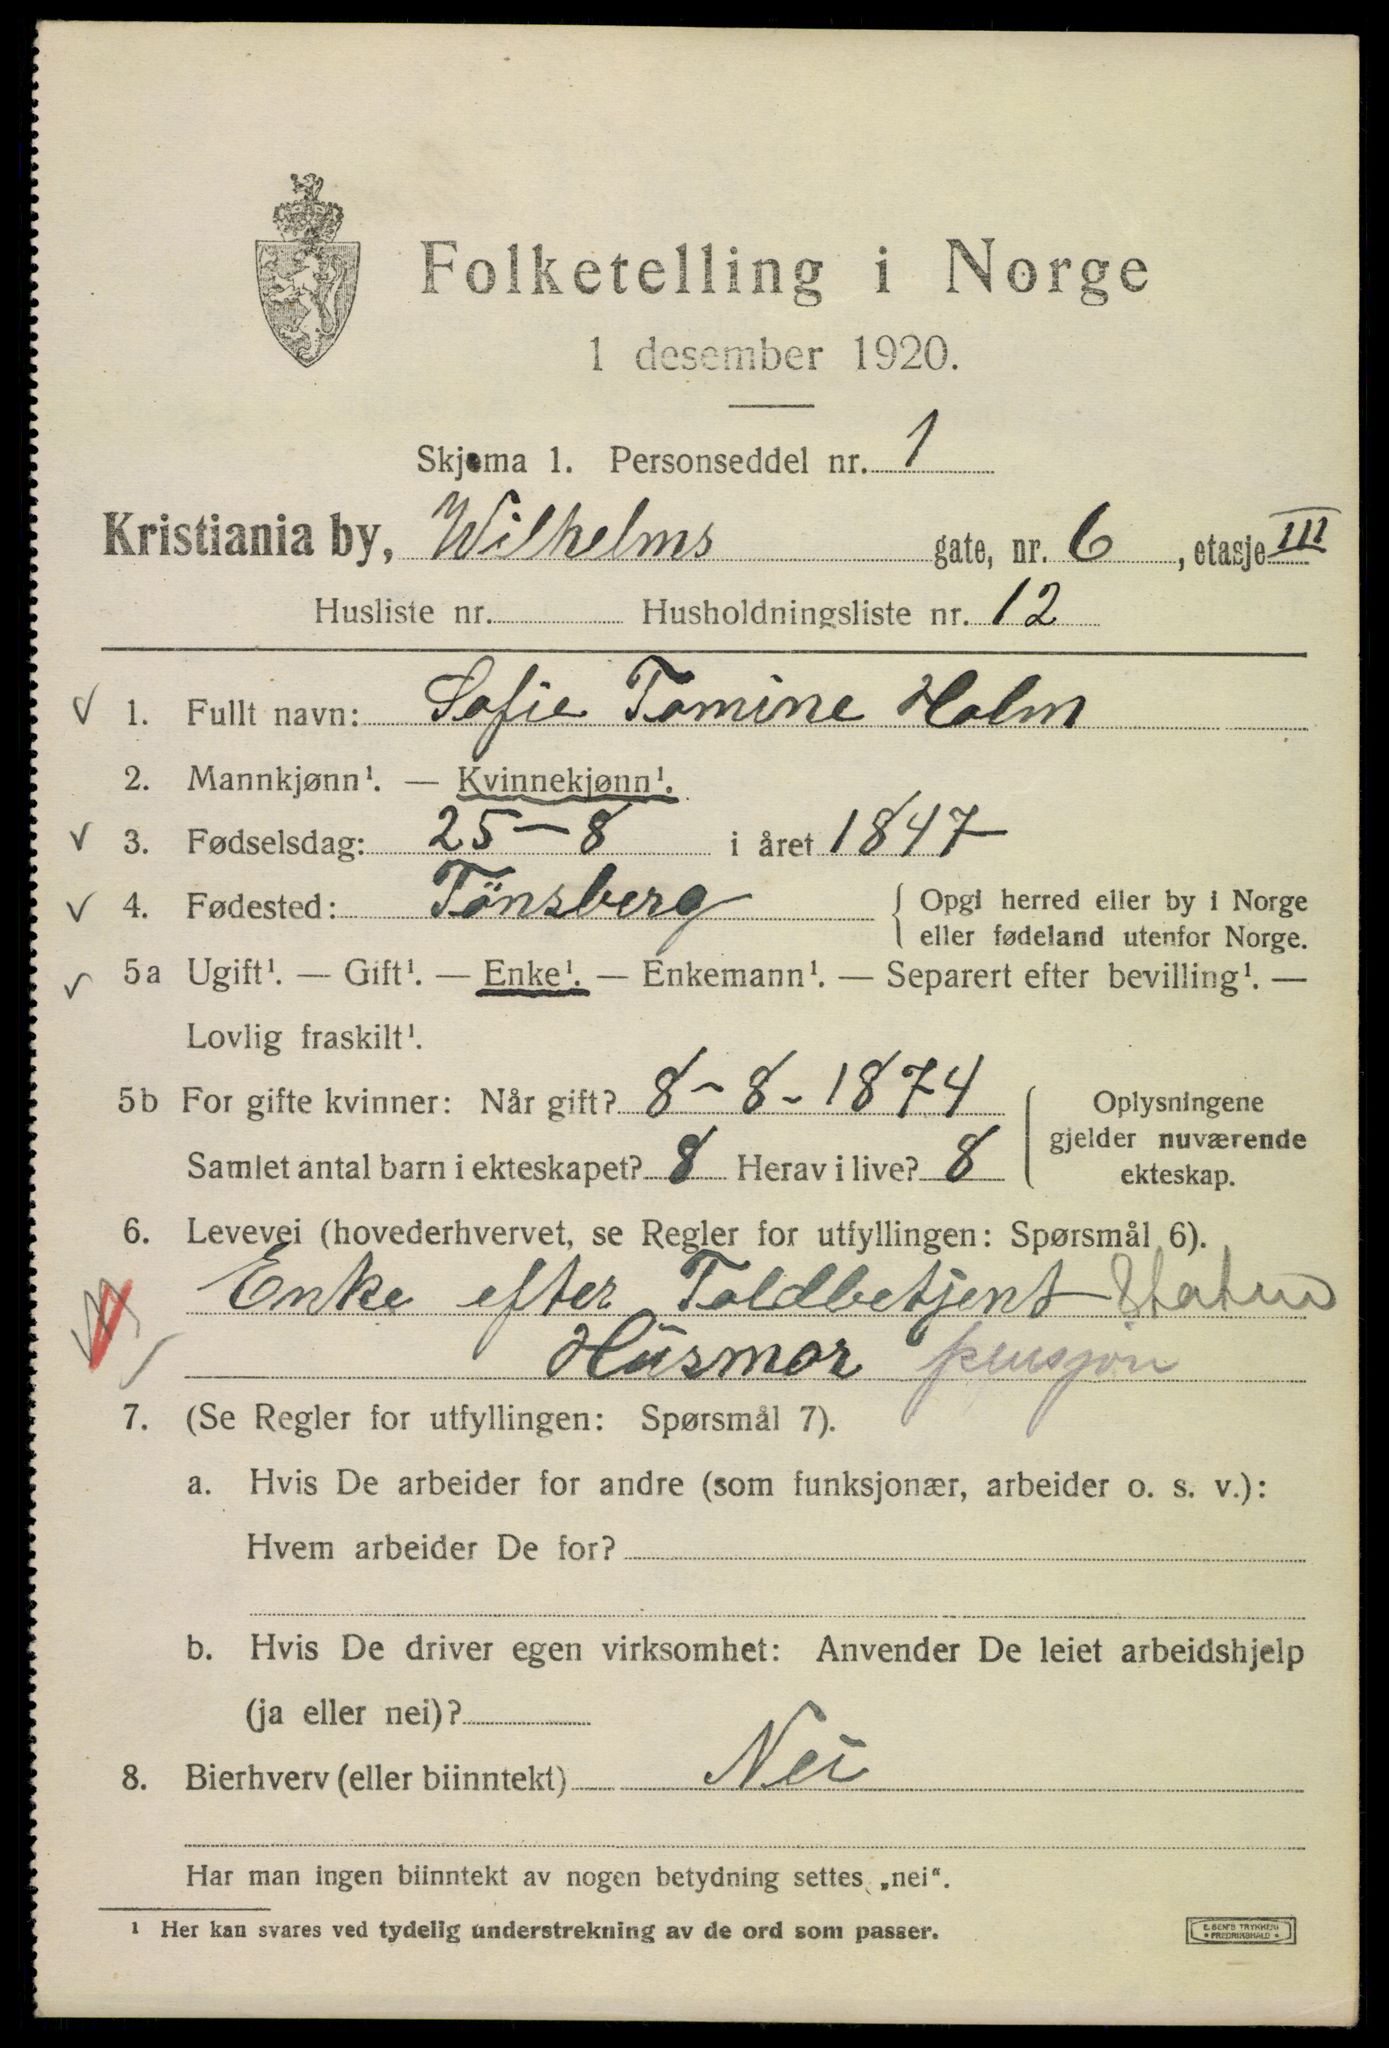 Folketelling i Norge
1 desember 1920.
Skjema 1. Personseddel nr. 1
Kristiania by, Wilhelms gate, nr. 6, etasje III
Husliste nr. Husholdningsliste nr. 12
1. Fullt navn: Sofie Tomine Holm
2. Mannkjønn¹. — Kvinnekjønn¹.
3. Fødselsdag: 25-8 i året 1847
4. Fødested: Tönsberg { Opgi herred eller by i Norge
eller fødeland utenfor Norge.
5a Ugift¹. — Gift¹. — Enke¹. — Enkemann¹. — Separert efter bevilling¹. —
Lovlig fraskilt¹.
5b For gifte kvinner: Når gift? 8-8-1874 { Oplysningene
gjelder nuværende
Samlet antal barn i ekteskapet? 8 Herav i live? 8
ekteskap.
6. Levevei (hovederhvervet, se Regler for utfyllingen: Spørsmål 6).
Enke efter Toldbetjent Statens
Husmor pensjon
7. (Se Regler for utfyllingen: Spørsmål 7).
a. Hvis De arbeider for andre (som funksjonær, arbeider o. s. v.):
Hvem arbeider De for?
b. Hvis De driver egen virksomhet: Anvender De leiet arbeidshjelp
(ja eller nei)?
8. Bierhverv (eller biinntekt) Nei
Har man ingen biinntekt av nogen betydning settes „nei“.
¹ Her kan svares ved tydelig understrekning av de ord som passer.
E. SEN'S TRYKKERI
* FREDRIKSHALD *